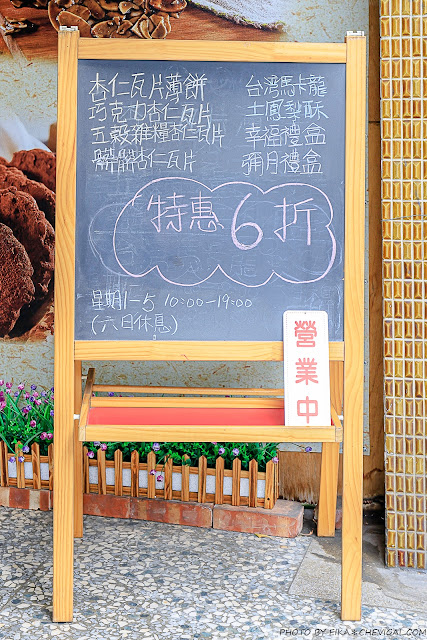 杏仁瓦片薄餅
巧克力杏仁瓦片
五穀雜糧杏仁瓦片
杏仁瓦片
台灣馬卡龍
土鳳梨酥
幸福禮盒
彌月禮盒
特惠6折
星期1-5 10:00-19:00
(六日休息)
營業中
PHOTO BY EIKA※CHEVIQAL.COM